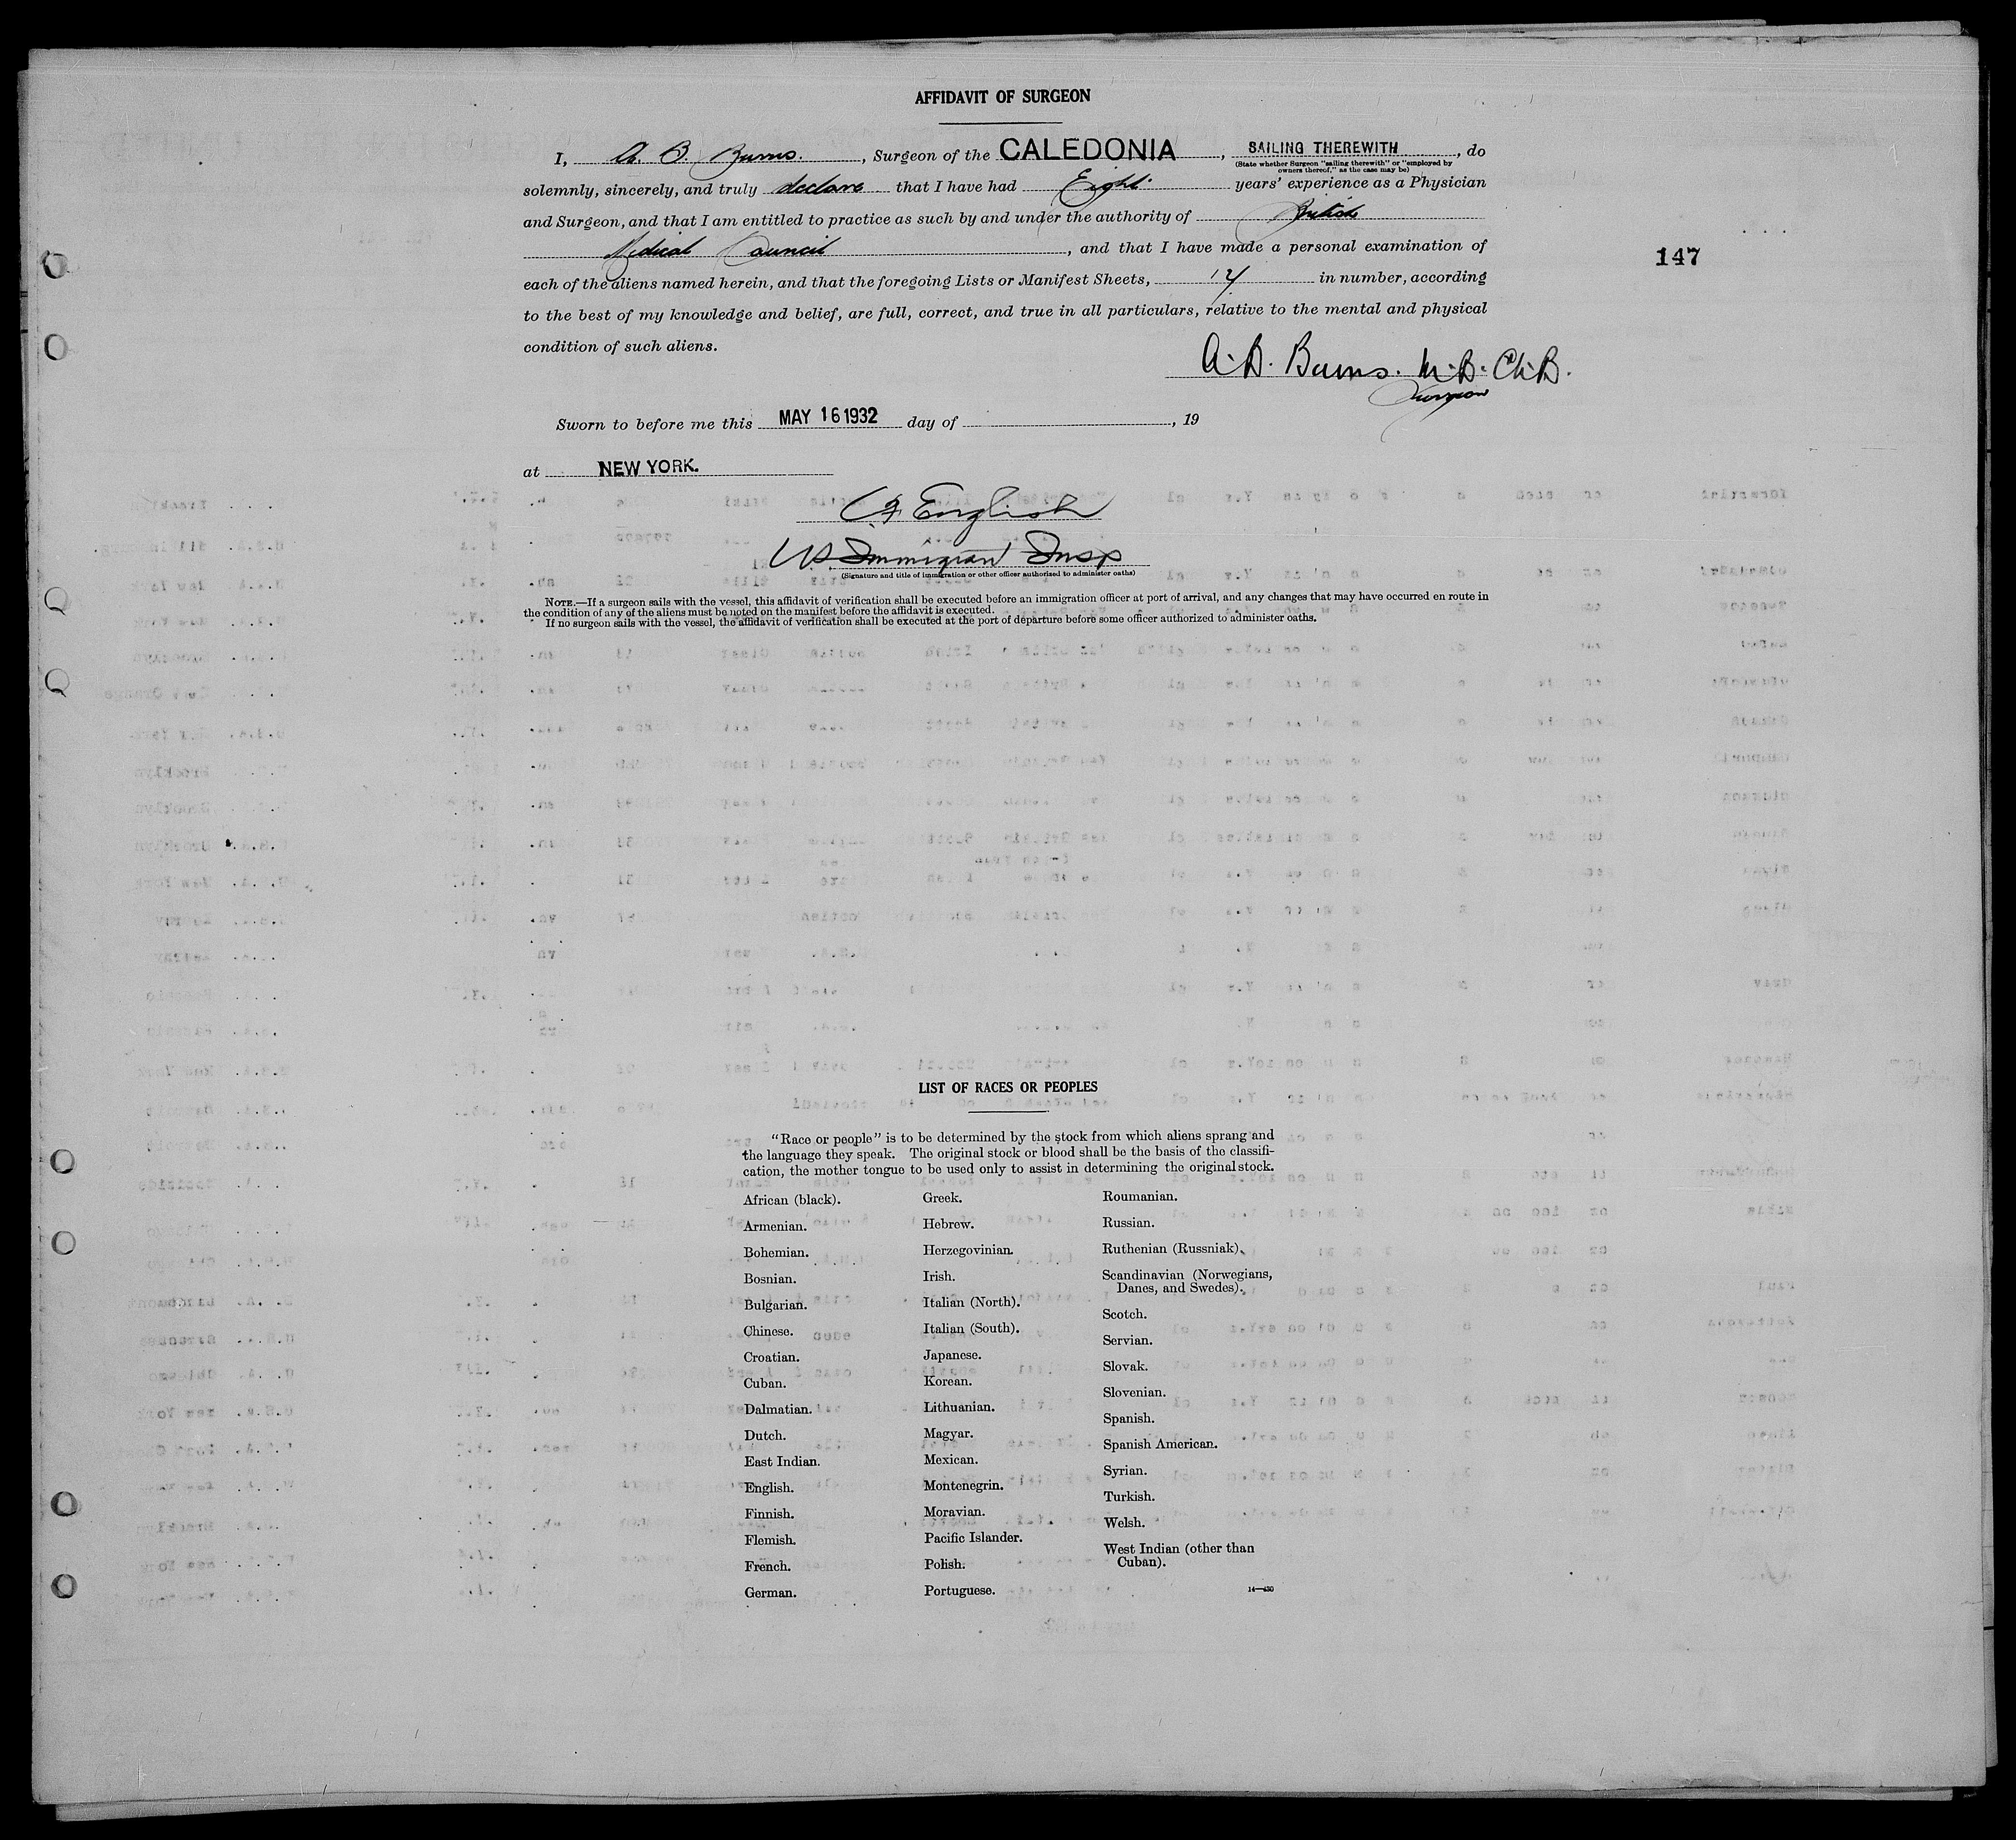 AFFIDAVIT OF SURGEON
I, A. B. Burns., Surgeon of the CALEDONIA, SAILING THEREWITH, do
(State whether Surgeon "sailing therewith" or "employed by
owners thereof," as the case may be)
solemnly, sincerely, and truly declare that I have had Eight years' experience as a Physician
and Surgeon, and that I am entitled to practice as such by and under the authority of British
Medical Council, and that I have made a personal examination of
147
each of the aliens named herein, and that the foregoing Lists or Manifest Sheets, in number, according
to the best of my knowledge and belief, are full, correct, and true in all particulars, relative to the mental and physical
condition of such aliens.
A. B. Burns. M.B. Ch.B.
Surgeon
Sworn to before me this MAY 16 1932 day of , 19
at NEW YORK.
English
US Immigrant Insp
(Signature and title of immigration or other officer authorized to administer oaths)
NOTE.—If a surgeon sails with the vessel, this affidavit of verification shall be executed before an immigration officer at port of arrival, and any changes that may have occurred en route in
the condition of any of the aliens must be noted on the manifest before the affidavit is executed.
If no surgeon sails with the vessel, the affidavit of verification shall be executed at the port of departure before some officer authorized to administer oaths.
LIST OF RACES OR PEOPLES
"Race or people" is to be determined by the stock from which aliens sprang and
the language they speak. The original stock or blood shall be the basis of the classifi-
cation, the mother tongue to be used only to assist in determining the original stock.
African (black).
Armenian.
Bohemian.
Bosnian.
Bulgarian.
Chinese.
Croatian.
Cuban.
Dalmatian.
Dutch.
East Indian.
English.
Finnish.
Flemish.
French.
German.
Greek.
Hebrew.
Herzegovinian.
Irish.
Italian (North).
Italian (South).
Japanese.
Korean.
Lithuanian.
Magyar.
Mexican.
Montenegrin.
Moravian.
Pacific Islander.
Polish.
Portuguese.
Roumanian.
Russian.
Ruthenian (Russniak).
Scandinavian (Norwegians,
Danes, and Swedes).
Scotch.
Servian.
Slovak.
Slovenian.
Spanish.
Spanish American.
Syrian.
Turkish.
Welsh.
West Indian (other than
Cuban).
14—430